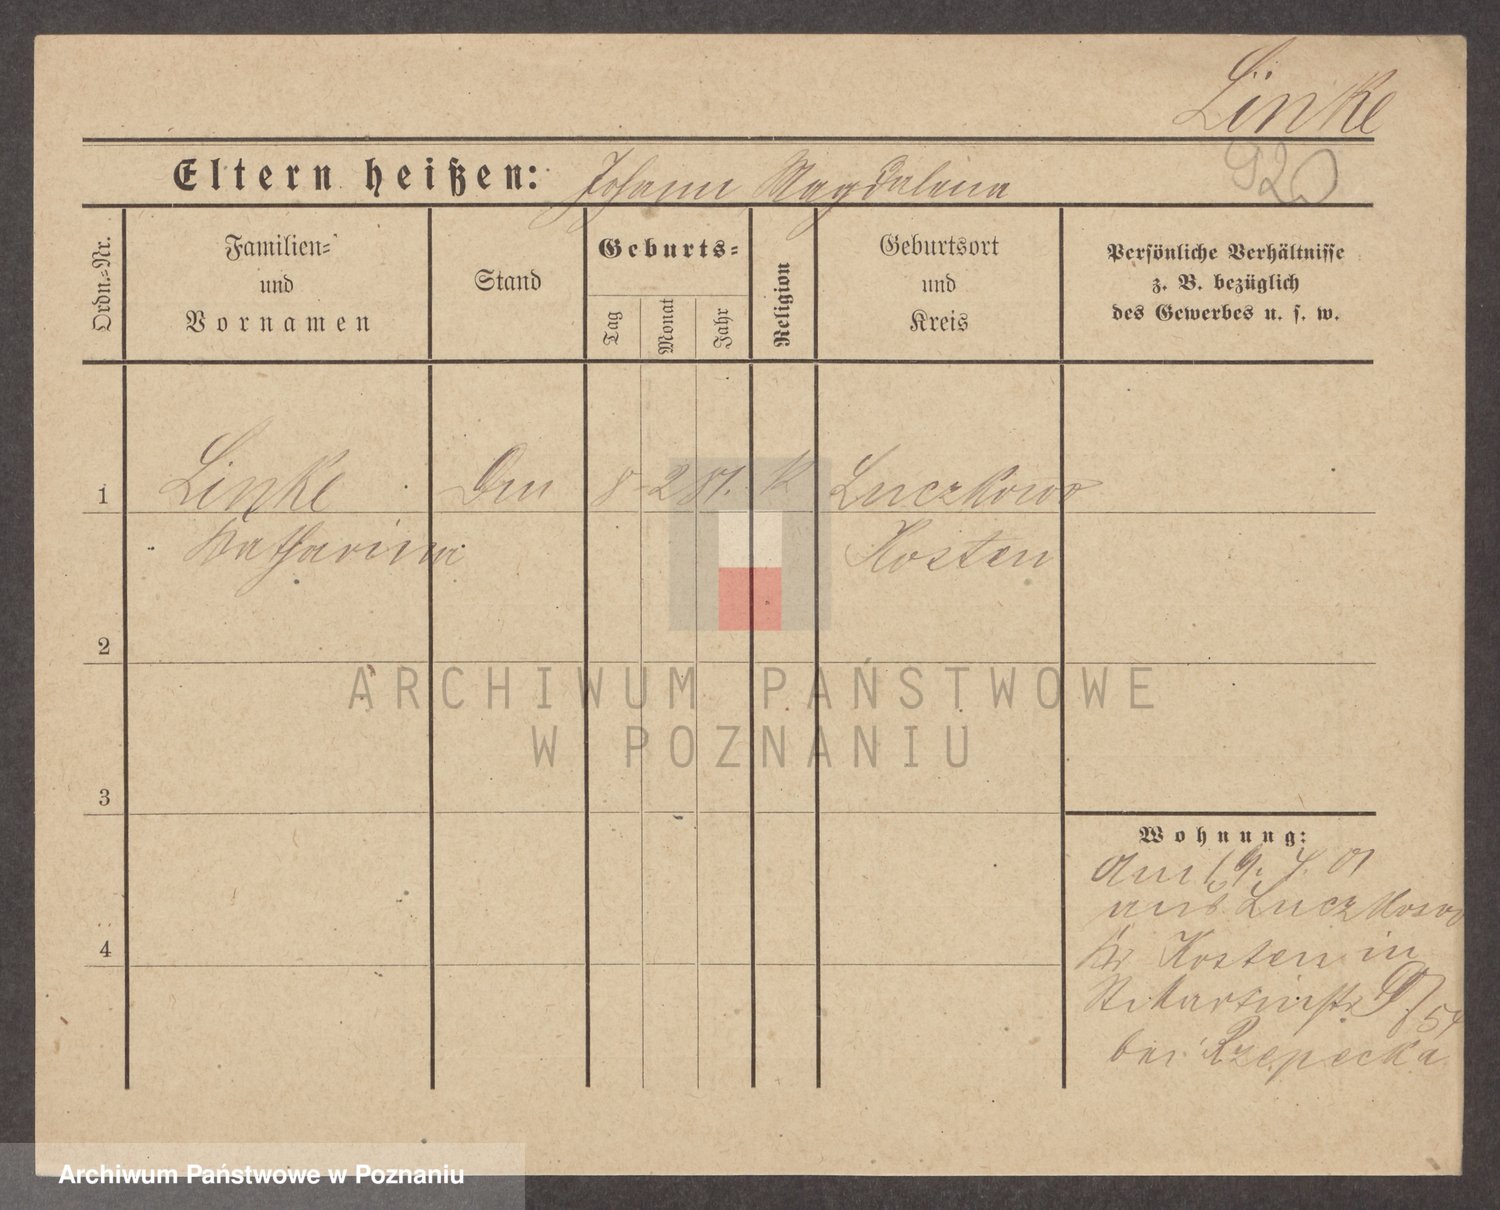 Linke
920
Eltern heißen: Johann Magdalena
Ordn.-Nr.
Familien-
und
Vornamen
Stand
Geburts-
Tag
Monat
Jahr
Religion
Geburtsort
und
Kreis
Persönliche Verhältnisse
z. B. bezüglich
des Gewerbes u. s. w.
1 Linke 8 2 81. K Luczkowo
Katharina Kosten
2
3
4
Wohnung:
Am 19. 4. 01
aus Luczkowo
Kr Kosten in
St. Martinstr 54
bei Rzepecka
ARCHIWUM PAŃSTWOWE
W POZNANIU
Archiwum Państwowe w Poznaniu